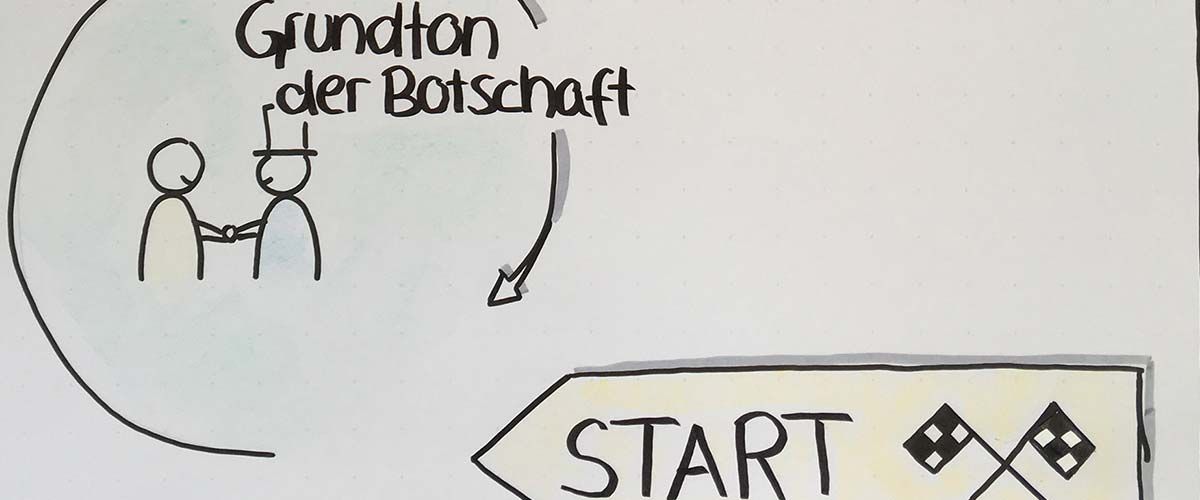 Grundton
der Botschaft
START